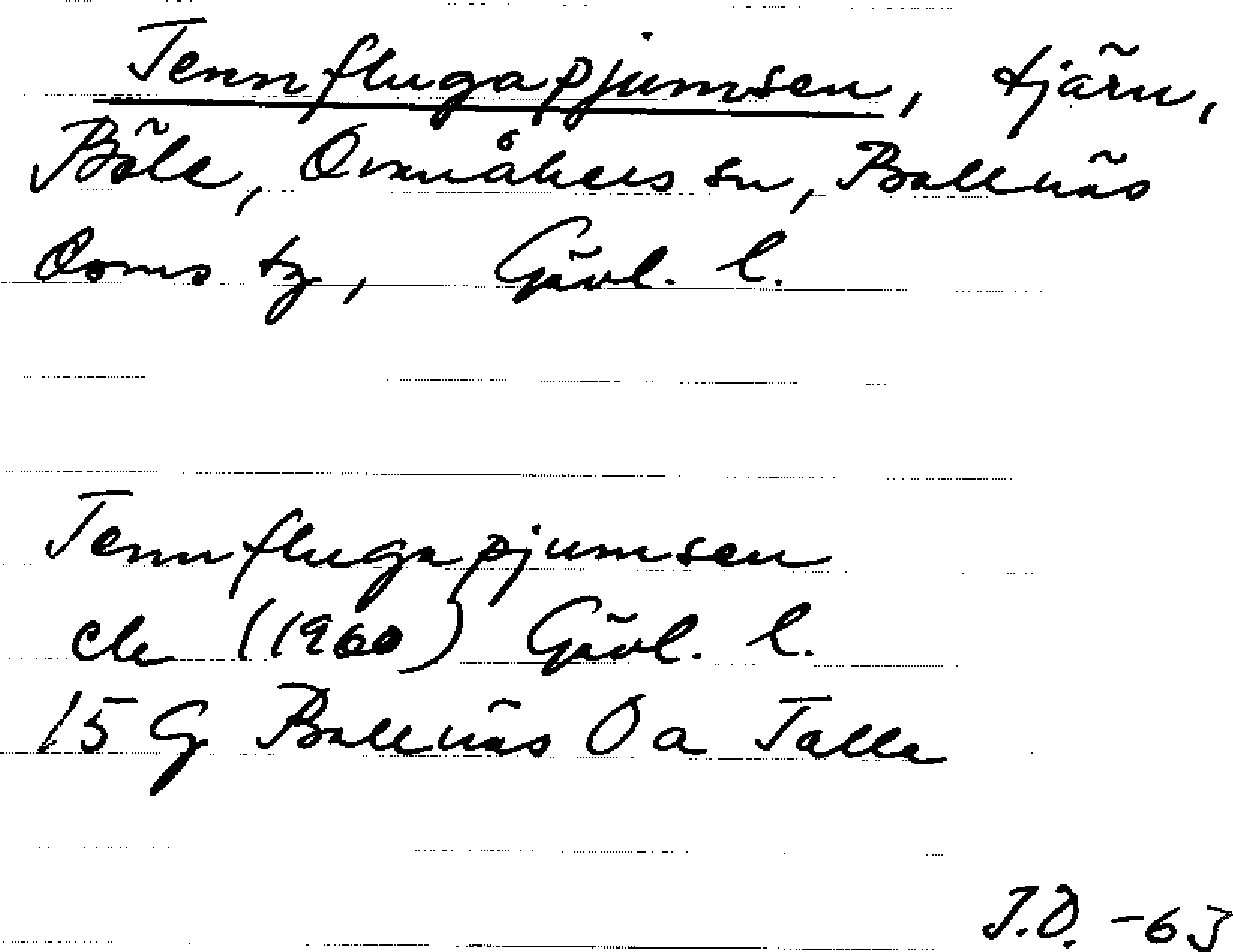 Tennflugapjumsen, tjärn,
Böle, Ovanåkers sn, Bollnäs
Doms tg, Gävl. l.
Tennflugapjumsen
ek (1960) Gävl. l.
15 G Bollnäs 0 a Talla
J.D. -63